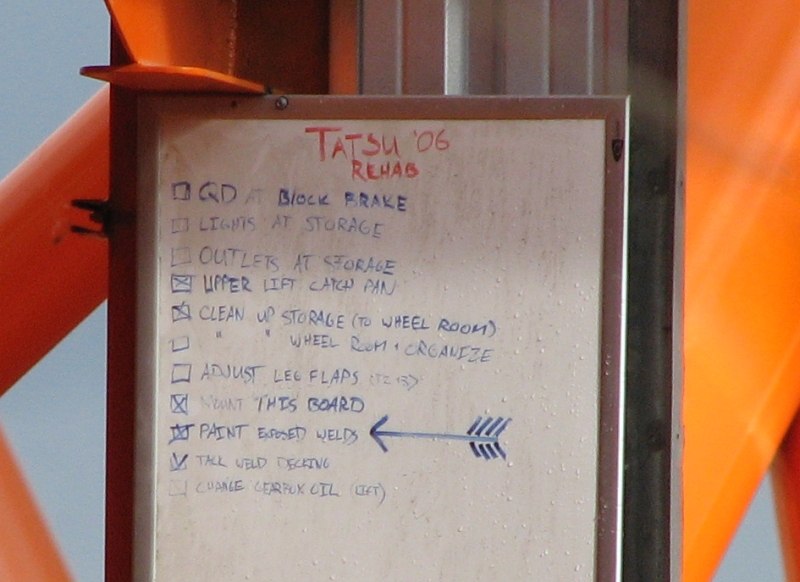 TATSU '06
REHAB
QD AT BLOCK BRAKE
LIGHTS AT STORAGE
OUTLETS AT STORAGE
UPPER LIFT CATCH PAN
CLEAN UP STORAGE (TO WHEEL ROOM)
" " WHEEL ROOM + ORGANIZE
ADJUST LEG FLAPS
MOUNT THIS BOARD
PAINT EXPOSED WELDS
TACK WELD DECKING
CHANGE GEARBOX OIL (LIFT)